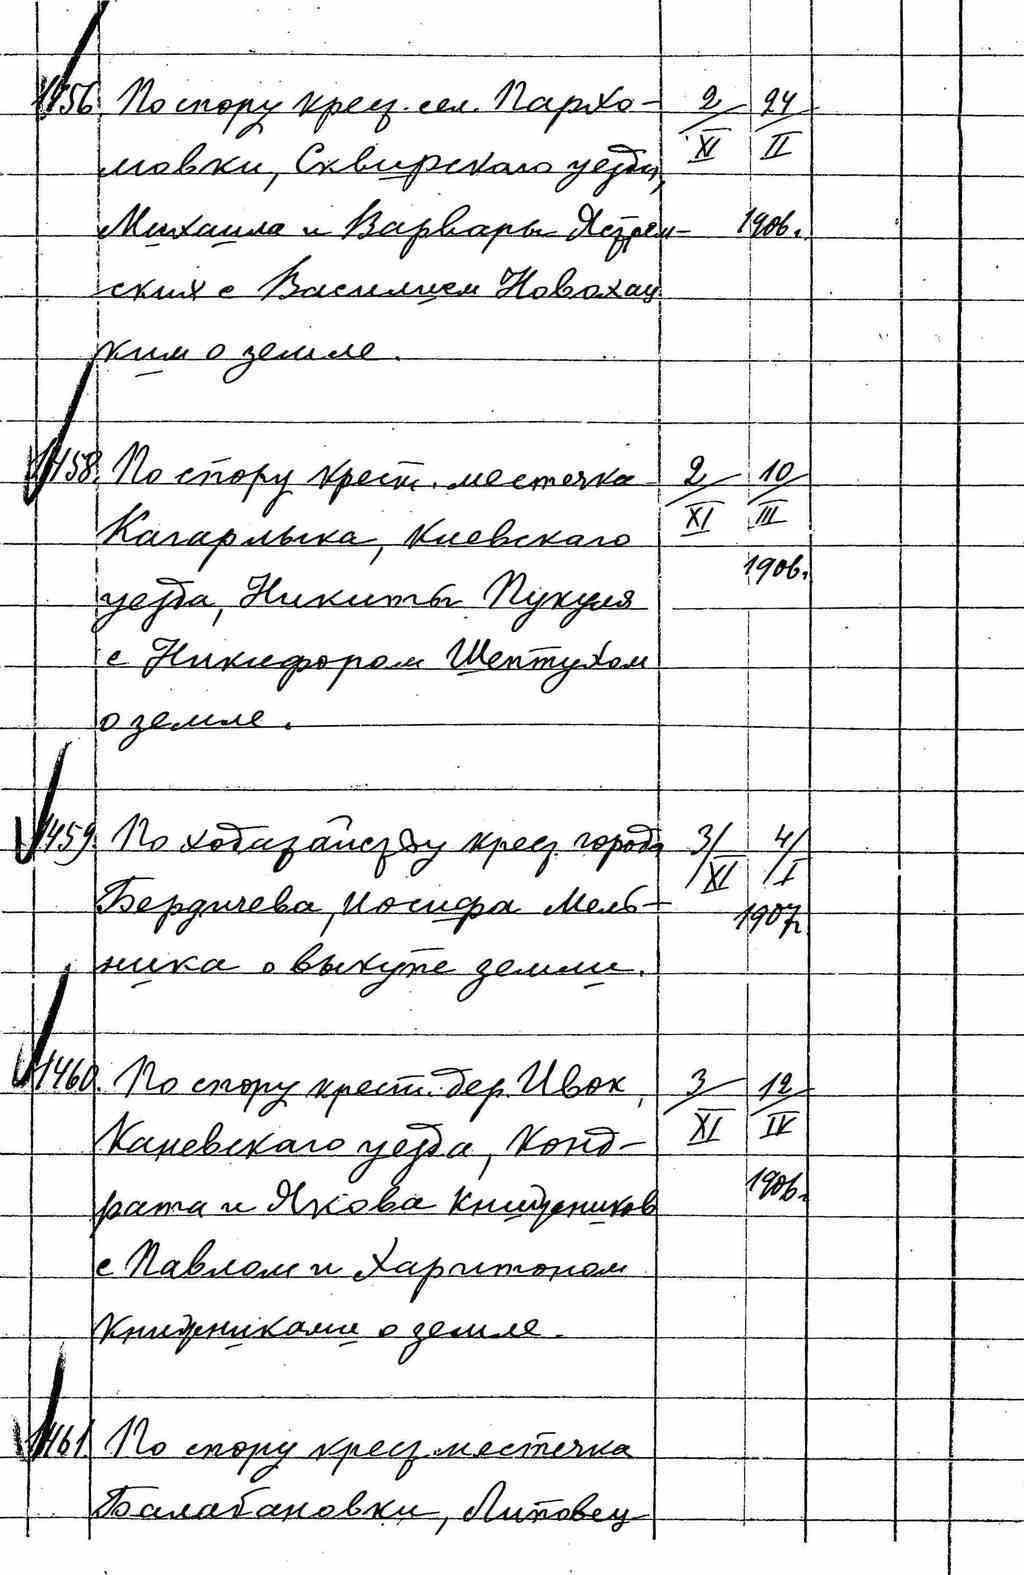 1456. По спору крест. сел. Пархо- 2/XI 24/II
мовки, Сквирского уезда,
Михаила и Варвары Ястрем- 1906 г.
ских с Василием Новохац
ким о земле.
1458. По спору крест. местечка 2/XI 10/III
Кагарлыка, Киевскаго
1906 г.
уезда, Никиты Пукуля
с Никифором Шептухом
о земле.
1459. По ходатайству крест. города 3/XI 4/I
Бердичева, Иосифа Мель- 1907 г.
ника о выкупе земли.
1460. По спору крест. дер. Ивок, 3/XI 12/IV
Каневскаго уезда, Конд-
рата и Якова Книшников 1906 г.
с Павлом и Харитоном
Книшниками о земле.
1461. По спору крест. местечка
Балабановки, Липовец